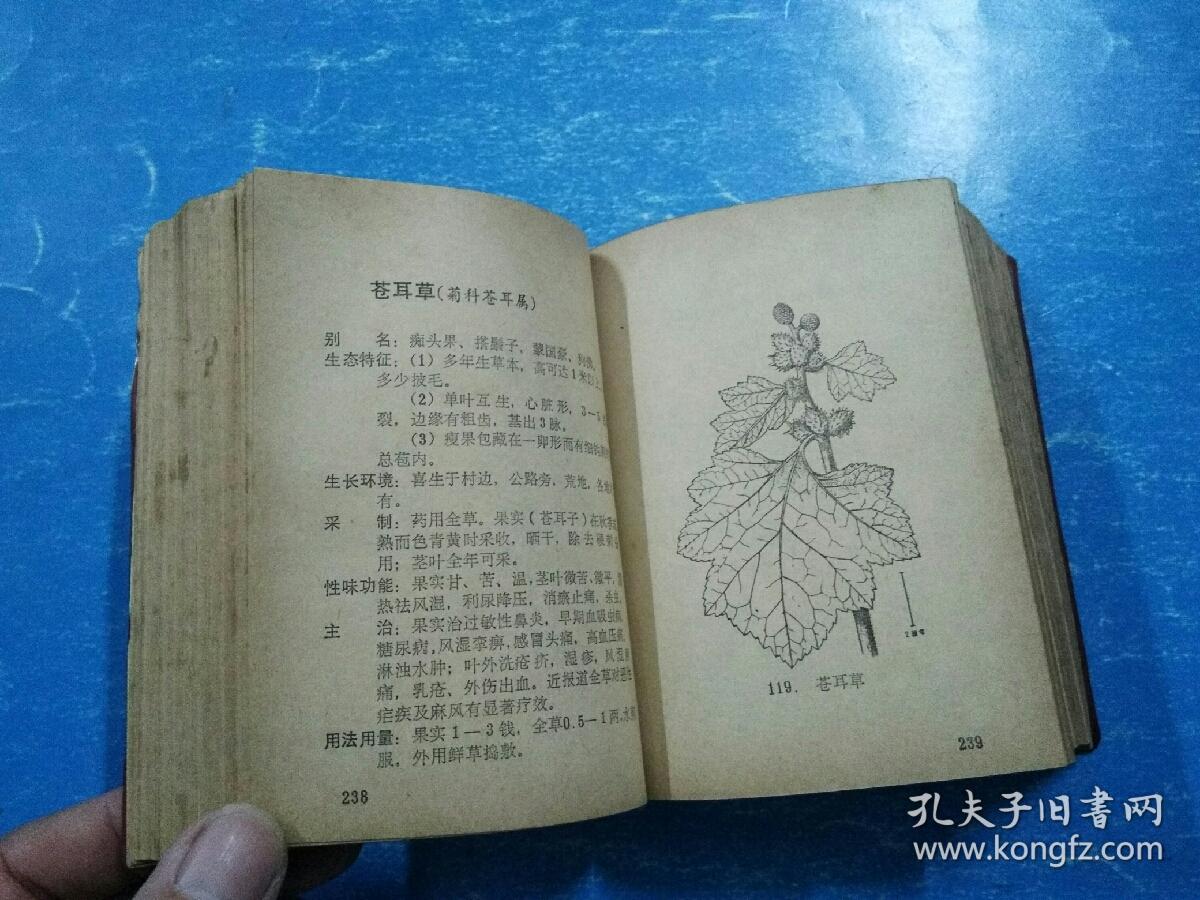 苍耳草(菊科苍耳属)
别 名：痴头果、搭鬃子，蒙国豪，狗
生态特征：(1) 多年生草本，高可达1米以上
多少披毛。
(2) 单叶互生，心脏形，3—
裂，边缘有粗齿，基出3脉，
(3) 瘦果包藏在一卵形而有细钩
总苞内。
生长环境：喜生于村边，公路旁，荒地，各地
有。
采 制：药用全草。果实(苍耳子)在秋季
熟而色青黄时采收，晒干，除去硬刺
用；茎叶全年可采。
性味功能：果实甘、苦、温，茎叶微苦、微平，
热祛风湿，利尿降压，消瘀止痛，杀虫。
主 治：果实治过敏性鼻炎，早期血吸虫病，
糖尿病，风湿挛痹，感冒头痛，高血压病，
淋浊水肿；叶外洗疮疥，湿疹，风湿
痛，乳疮、外伤出血。近报道全草对
疟疾及麻风有显著疗效。
用法用量：果实1—3钱，全草0.5—1两，水
服，外用鲜草捣敷。
238
2厘米
119. 苍耳草
239
孔夫子旧书网
www.kongfz.com